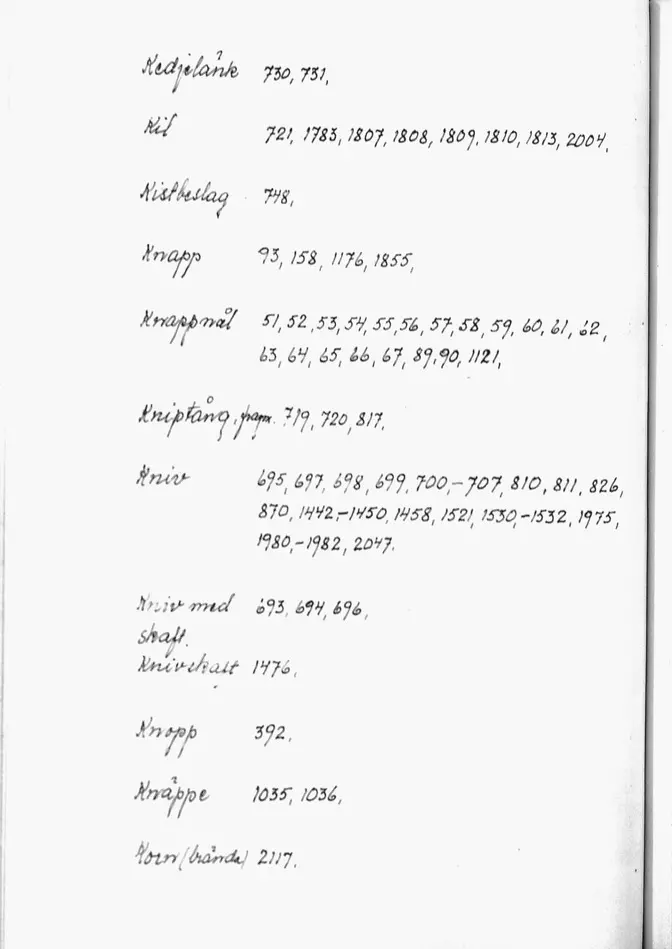 Kedjelänk 730, 731,
Kil 721, 1783, 1807, 1808, 1809, 1810, 1813, 2004,
Kistbeslag 748,
Knapp 93, 158, 1176, 1855,
Knappnål 51, 52, 53, 54, 55, 56, 57, 58, 59, 60, 61, 62,
63, 64, 65, 66, 67, 89, 90, 1121,
Kniptång, fragm. 719, 720, 817,
Kniv 695, 697, 698, 699, 700,-707, 810, 811, 826,
870, 1442,-1450, 1458, 1521, 1530,-1532, 1975,
1980,-1982, 2047.
Kniv med 693, 694, 696,
skaft.
Knivskaft 1476,
Knopp 392,
Knäppe 1035, 1036,
Korn (brända) 2117.